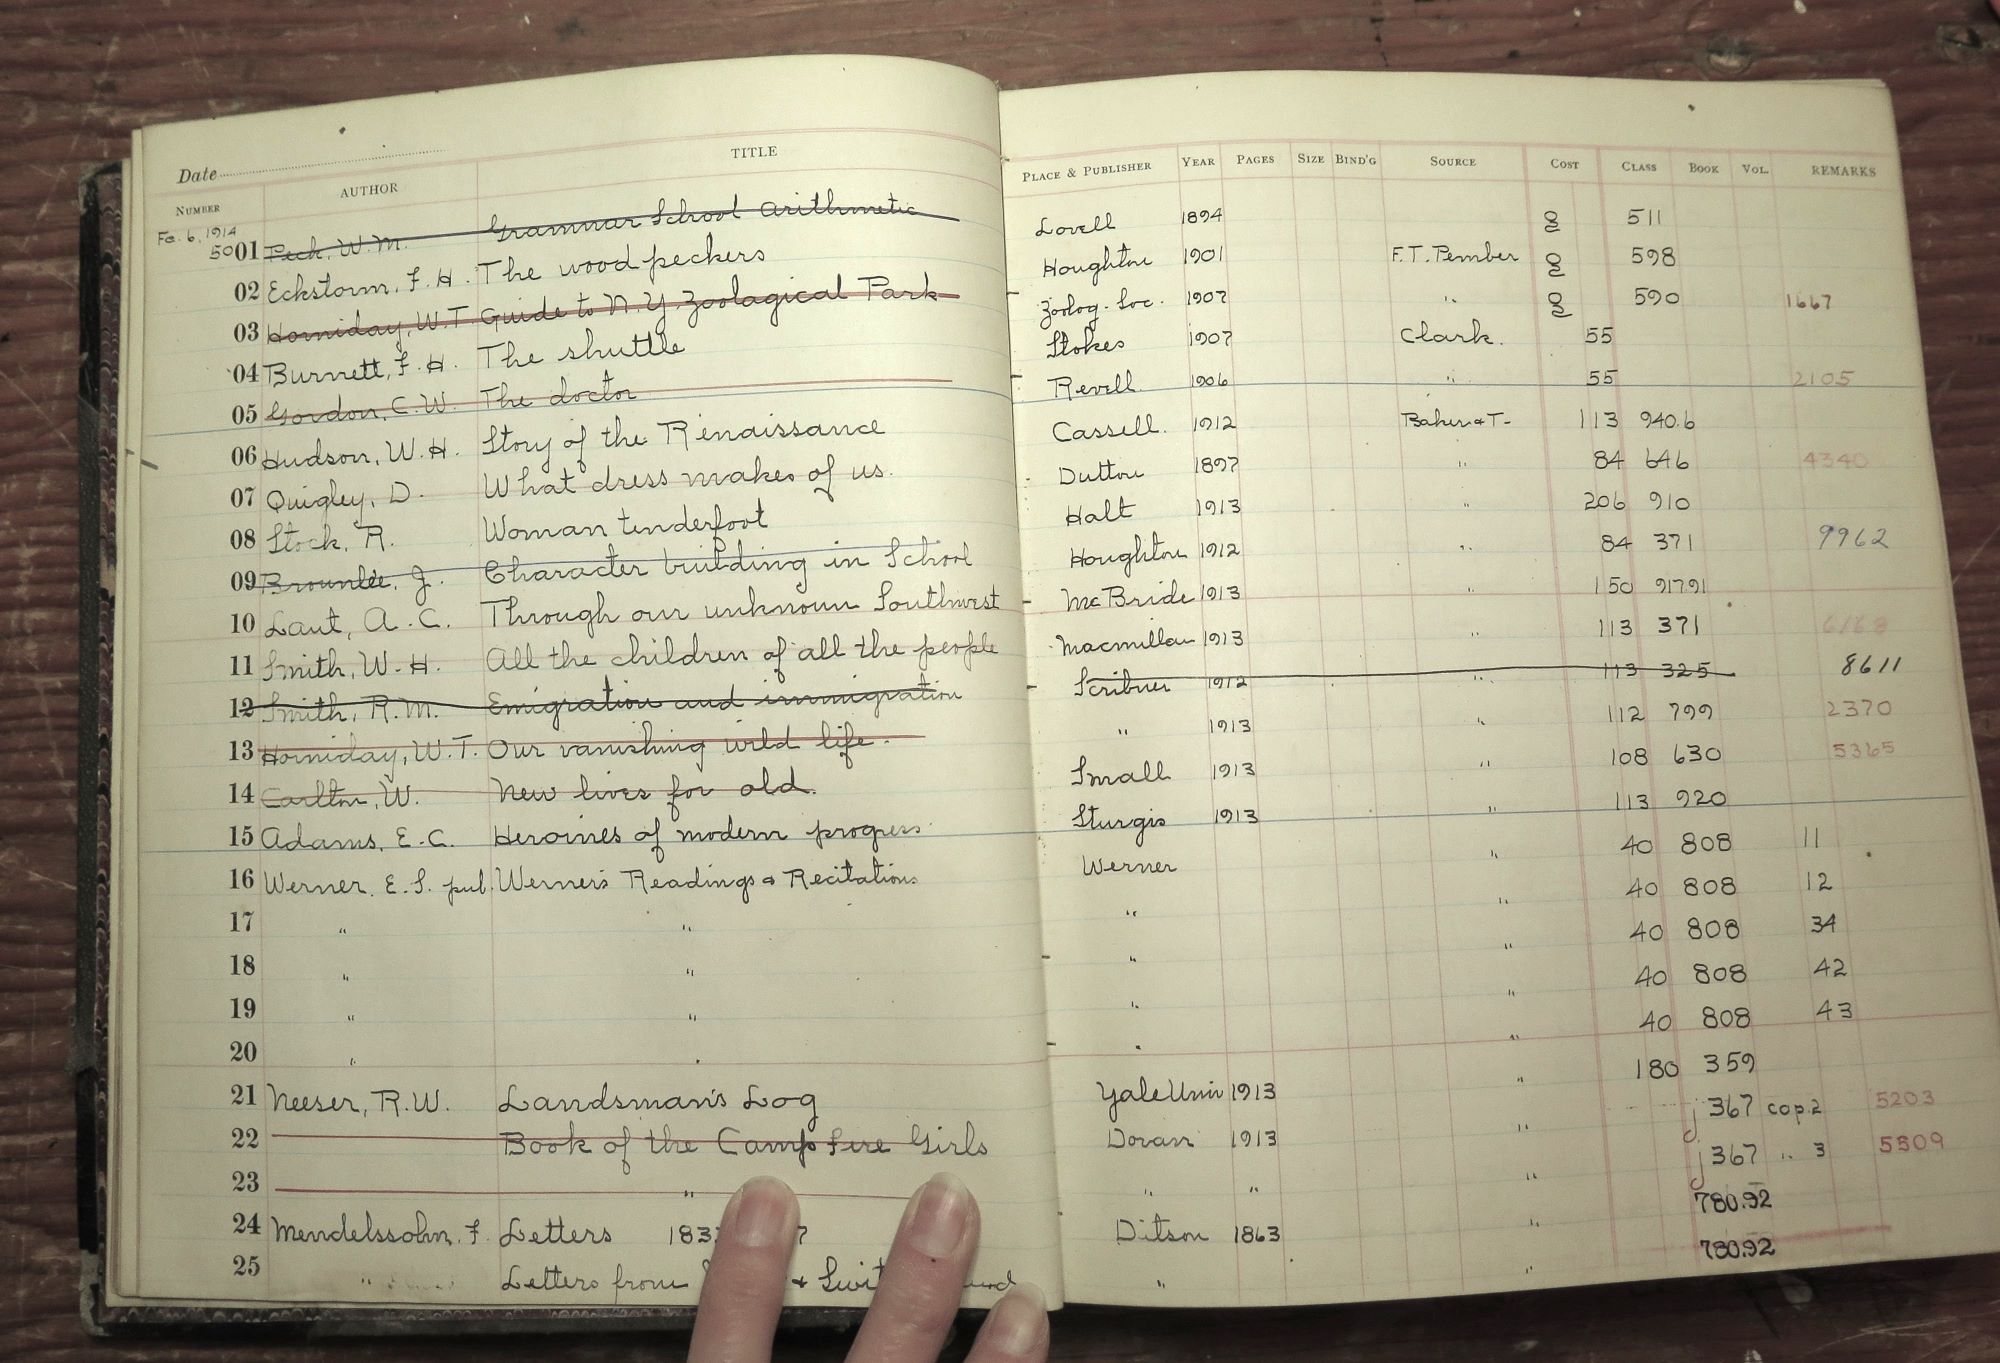 Date
NUMBER AUTHOR TITLE PLACE & PUBLISHER YEAR PAGES SIZE BIND'G SOURCE COST CLASS BOOK VOL. REMARKS
Fe. 6, 1914
5001 Peck, W.M. Grammar School arithmetic Lovell 1894 g 511
02 Eckstorm, F. H. The woodpeckers Houghton 1901 F.T. Pember g 598
03 Horniday, W.T. Guide to N.Y. Zoolagical Park Zoolog. Soc. 1907 " g 590 1667
04 Burnett, F. H. The shuttle Stokes 1907 Clark. 55
05 Gordon, C.W. The doctor Revell 1906 " 55 2105
06 Hudson, W. H. Story of the Renaissance Cassell. 1912 Baker & T- 113 940.6
07 Quigley, D. What dress makes of us. Dutton 1897 " 84 646 4340
08 Stock, R. Woman tenderfoot Halt 1913 " 206 910
09 Brownlee, J. Character building in School Houghton 1912 " 84 371 9962
10 Laut, A. C. Through our unknown Southwest McBride 1913 " 150 91791
11 Smith, W. H. All the children of all the people Macmillan 1913 " 113 371 6168
12 Smith, R.M. Emigration and immigration Scribner 1912 " 113 325 8611
13 Horniday, W.T. Our vanishing wild life. " 1913 " 112 799 2370
14 Carlton, W. New lives for old. Small 1913 " 108 630 5365
15 Adams, E. C. Heroines of modern progress Sturgis 1913 " 113 920
16 Werner, E. S. pub. Werner's Readings & Recitations Werner " 40 808 11
17 " " " " 40 808 12
18 " " " " 40 808 34
19 " " " " 40 808 42
20 " " " " 40 808 43
21 Neeser, R.W. Landsman's Log Yale Univ 1913 " 180 359
22 Book of the Camp Fire Girls Doran 1913 " j 367 cop. 2 5203
23 " " " " j 367 " 3 5509
24 Mendelssohn, F. Letters 183 7 Ditson 1863 " 780.92
25 " Letters from & " " 780.92